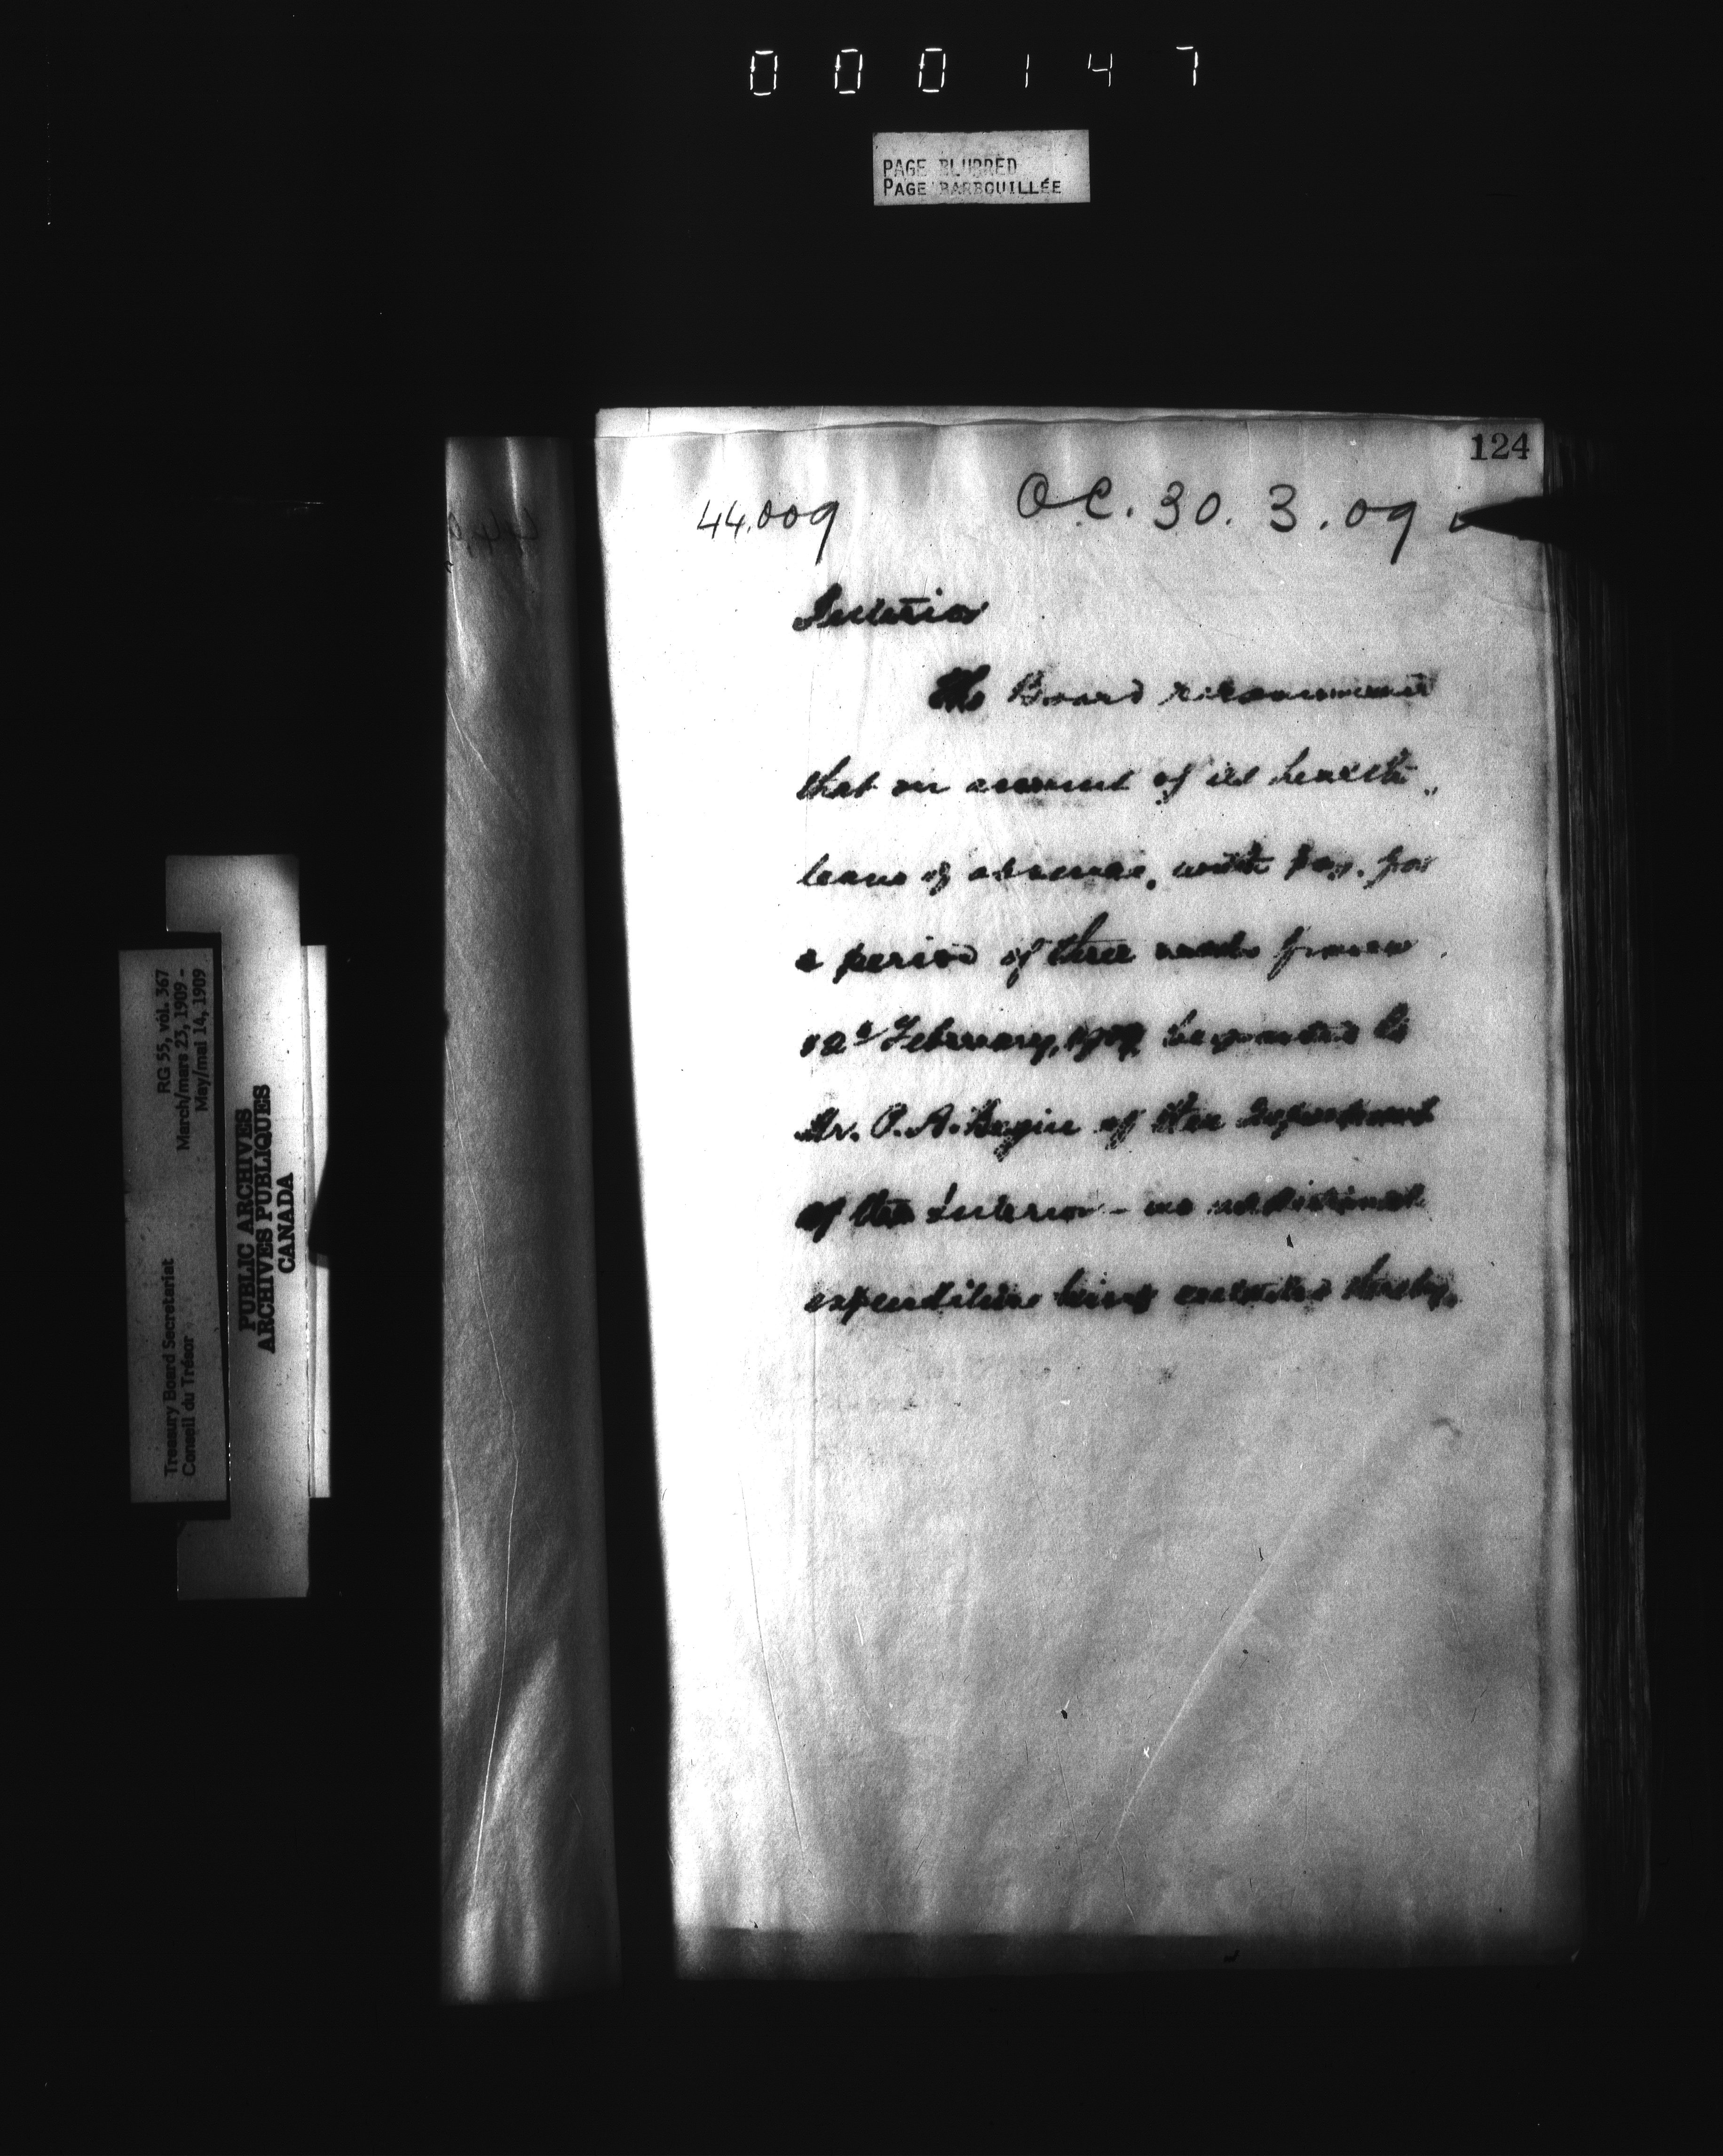 000147
PAGE BLURRED
PAGE BARBOUILLÉE
124
44.009 O.C. 30. 3. 09
Interior
The Board recommend
that on account of ill health,
leave of absence, with pay, for
a period of three from
February, 1909, be granted to
Mr. P. A. Begin of the Department
of the Interior - no additional
expenditure being entailed thereby.
RG 55, vol. 367
March/mars 23, 1909 -
May/mai 14, 1909
Treasury Board Secretariat
Conseil du Trésor
PUBLIC ARCHIVES
ARCHIVES PUBLIQUES
CANADA